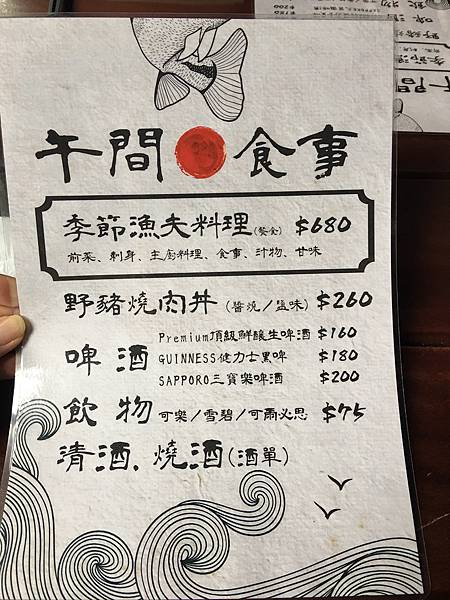 午間 食事
季節漁夫料理(餐食) $680
前菜、刺身、主廚料理、食事、汁物、甘味
野豬燒肉丼(醬燒/鹽味) $260
啤酒
Premium頂級鮮釀生啤酒 $160
GUINNESS健力士黑啤 $180
SAPPORO三寶樂啤酒 $200
飲物 可樂/雪碧/可爾必思 $75
清酒. 燒酒(酒單)